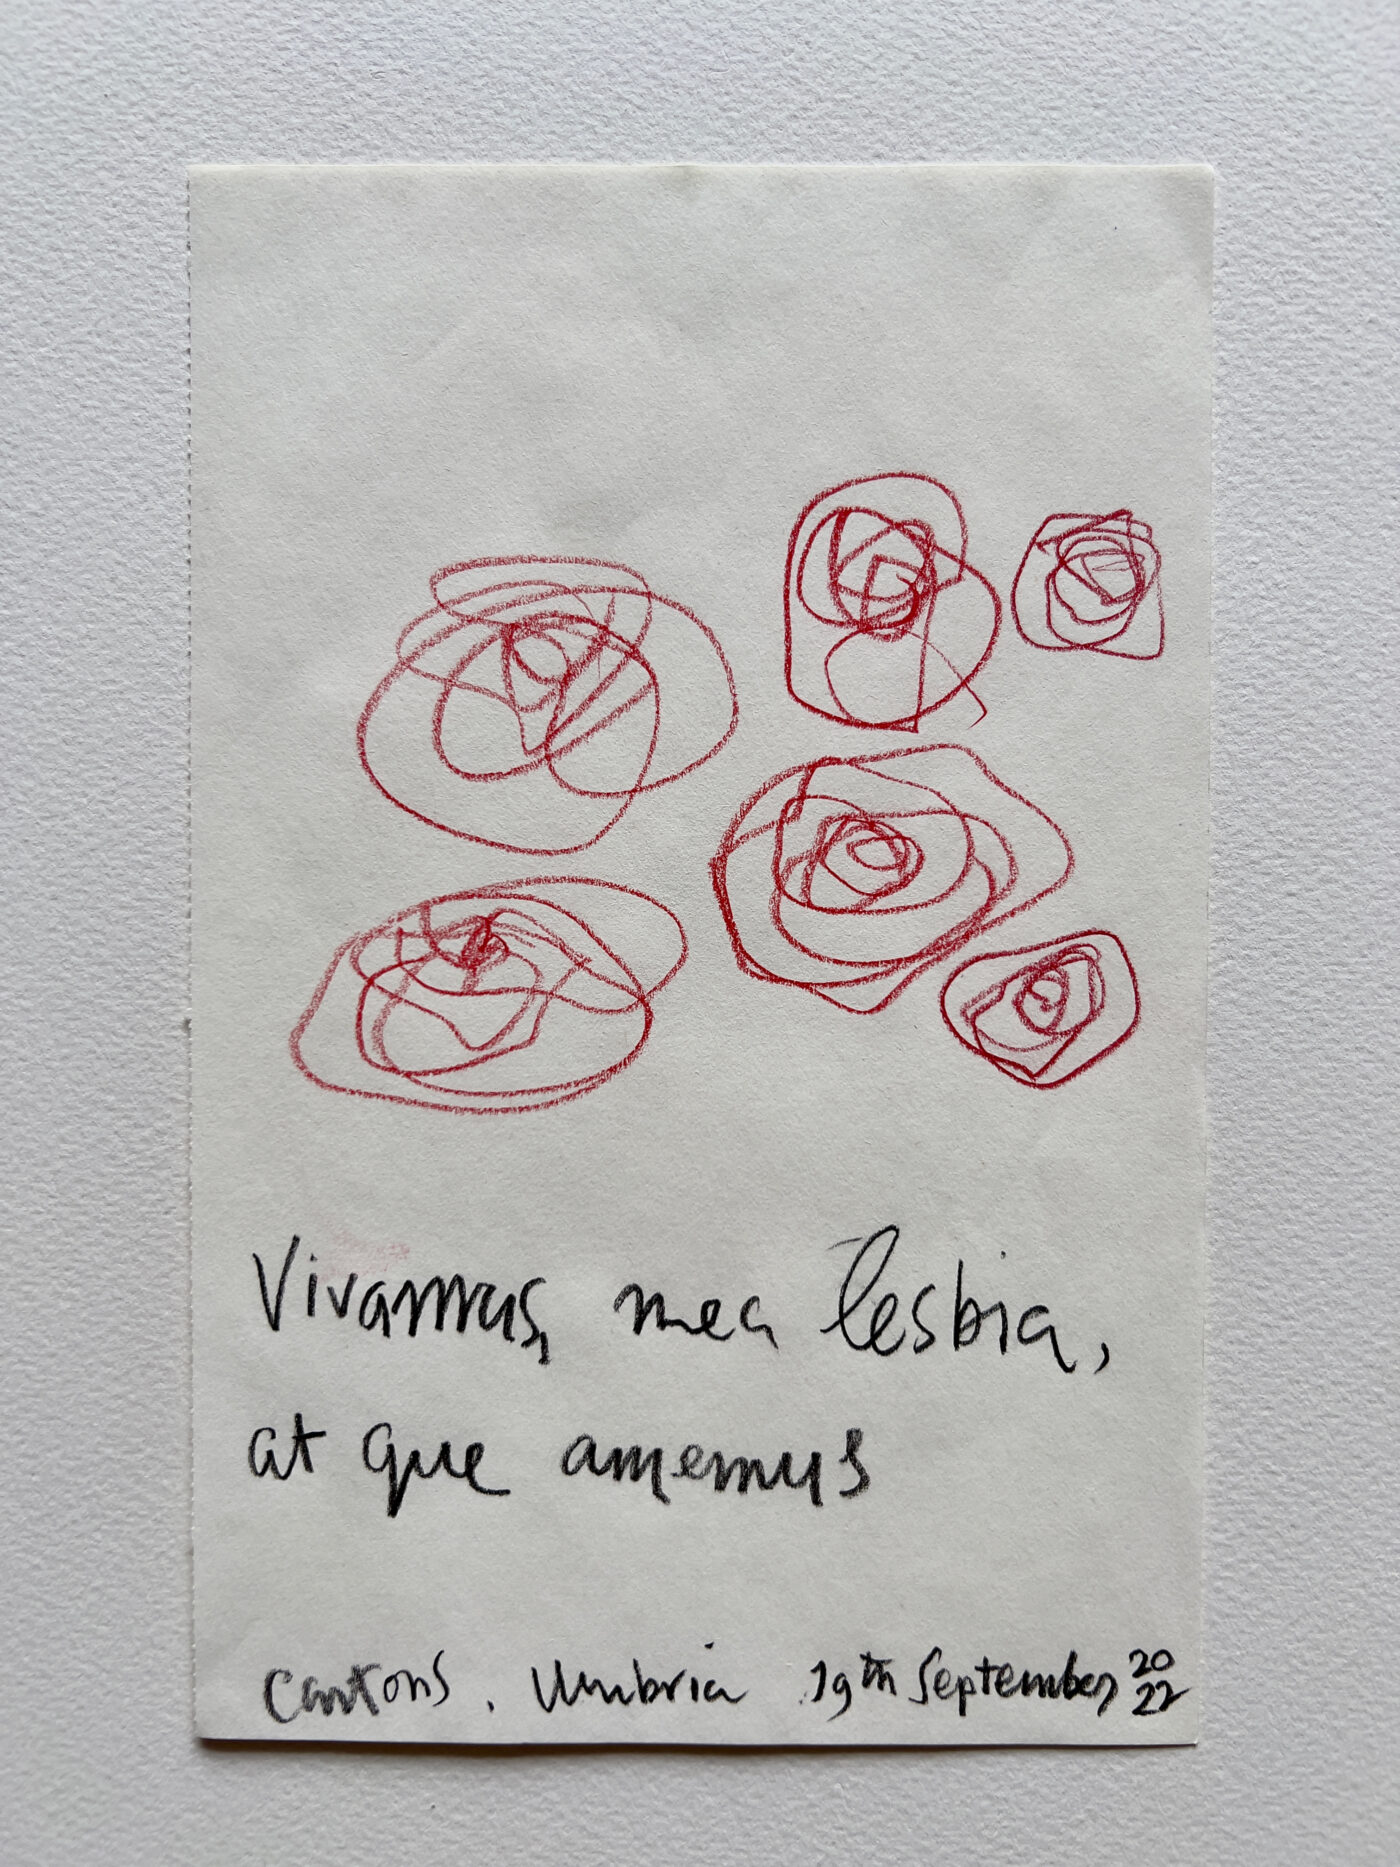 Vivamus, mea lesbia,
at que amemus
Cantons. Umbria 19th September 2022